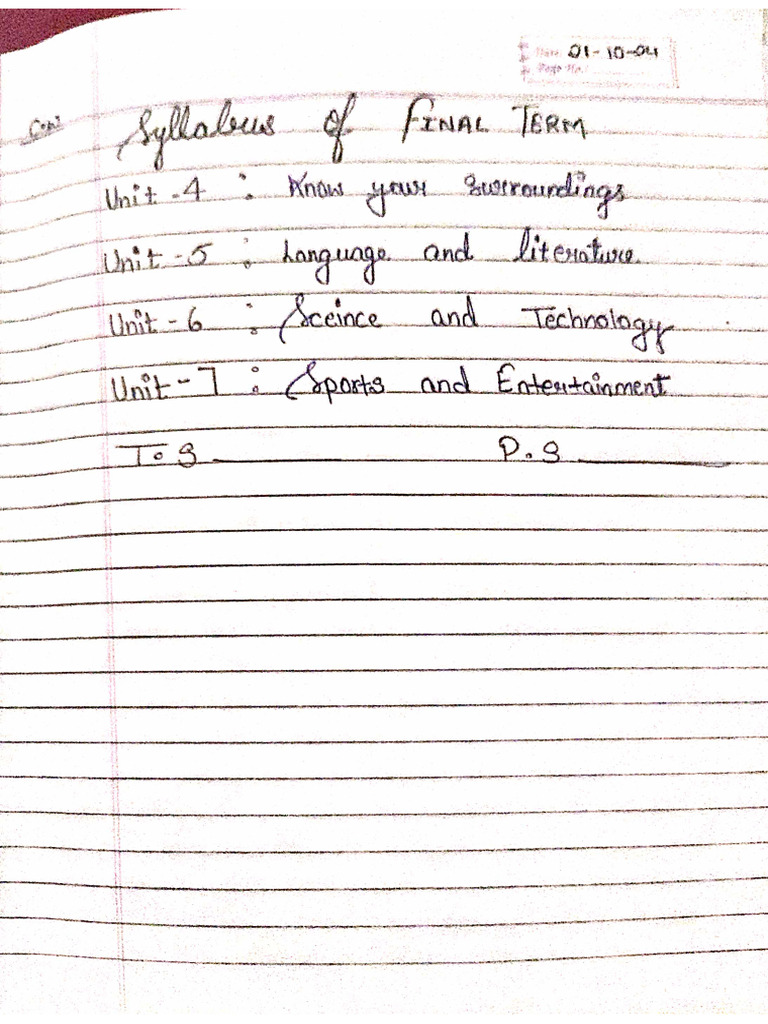 Date 01-10-04
Page No.
C.W
Syllabus of FINAL TERM
Unit - 4 : Know your surroundings
Unit - 5 : Language and literature
Unit - 6 : Sceince and Technology
Unit - 7 : Sports and Entertainment
T.S P.S